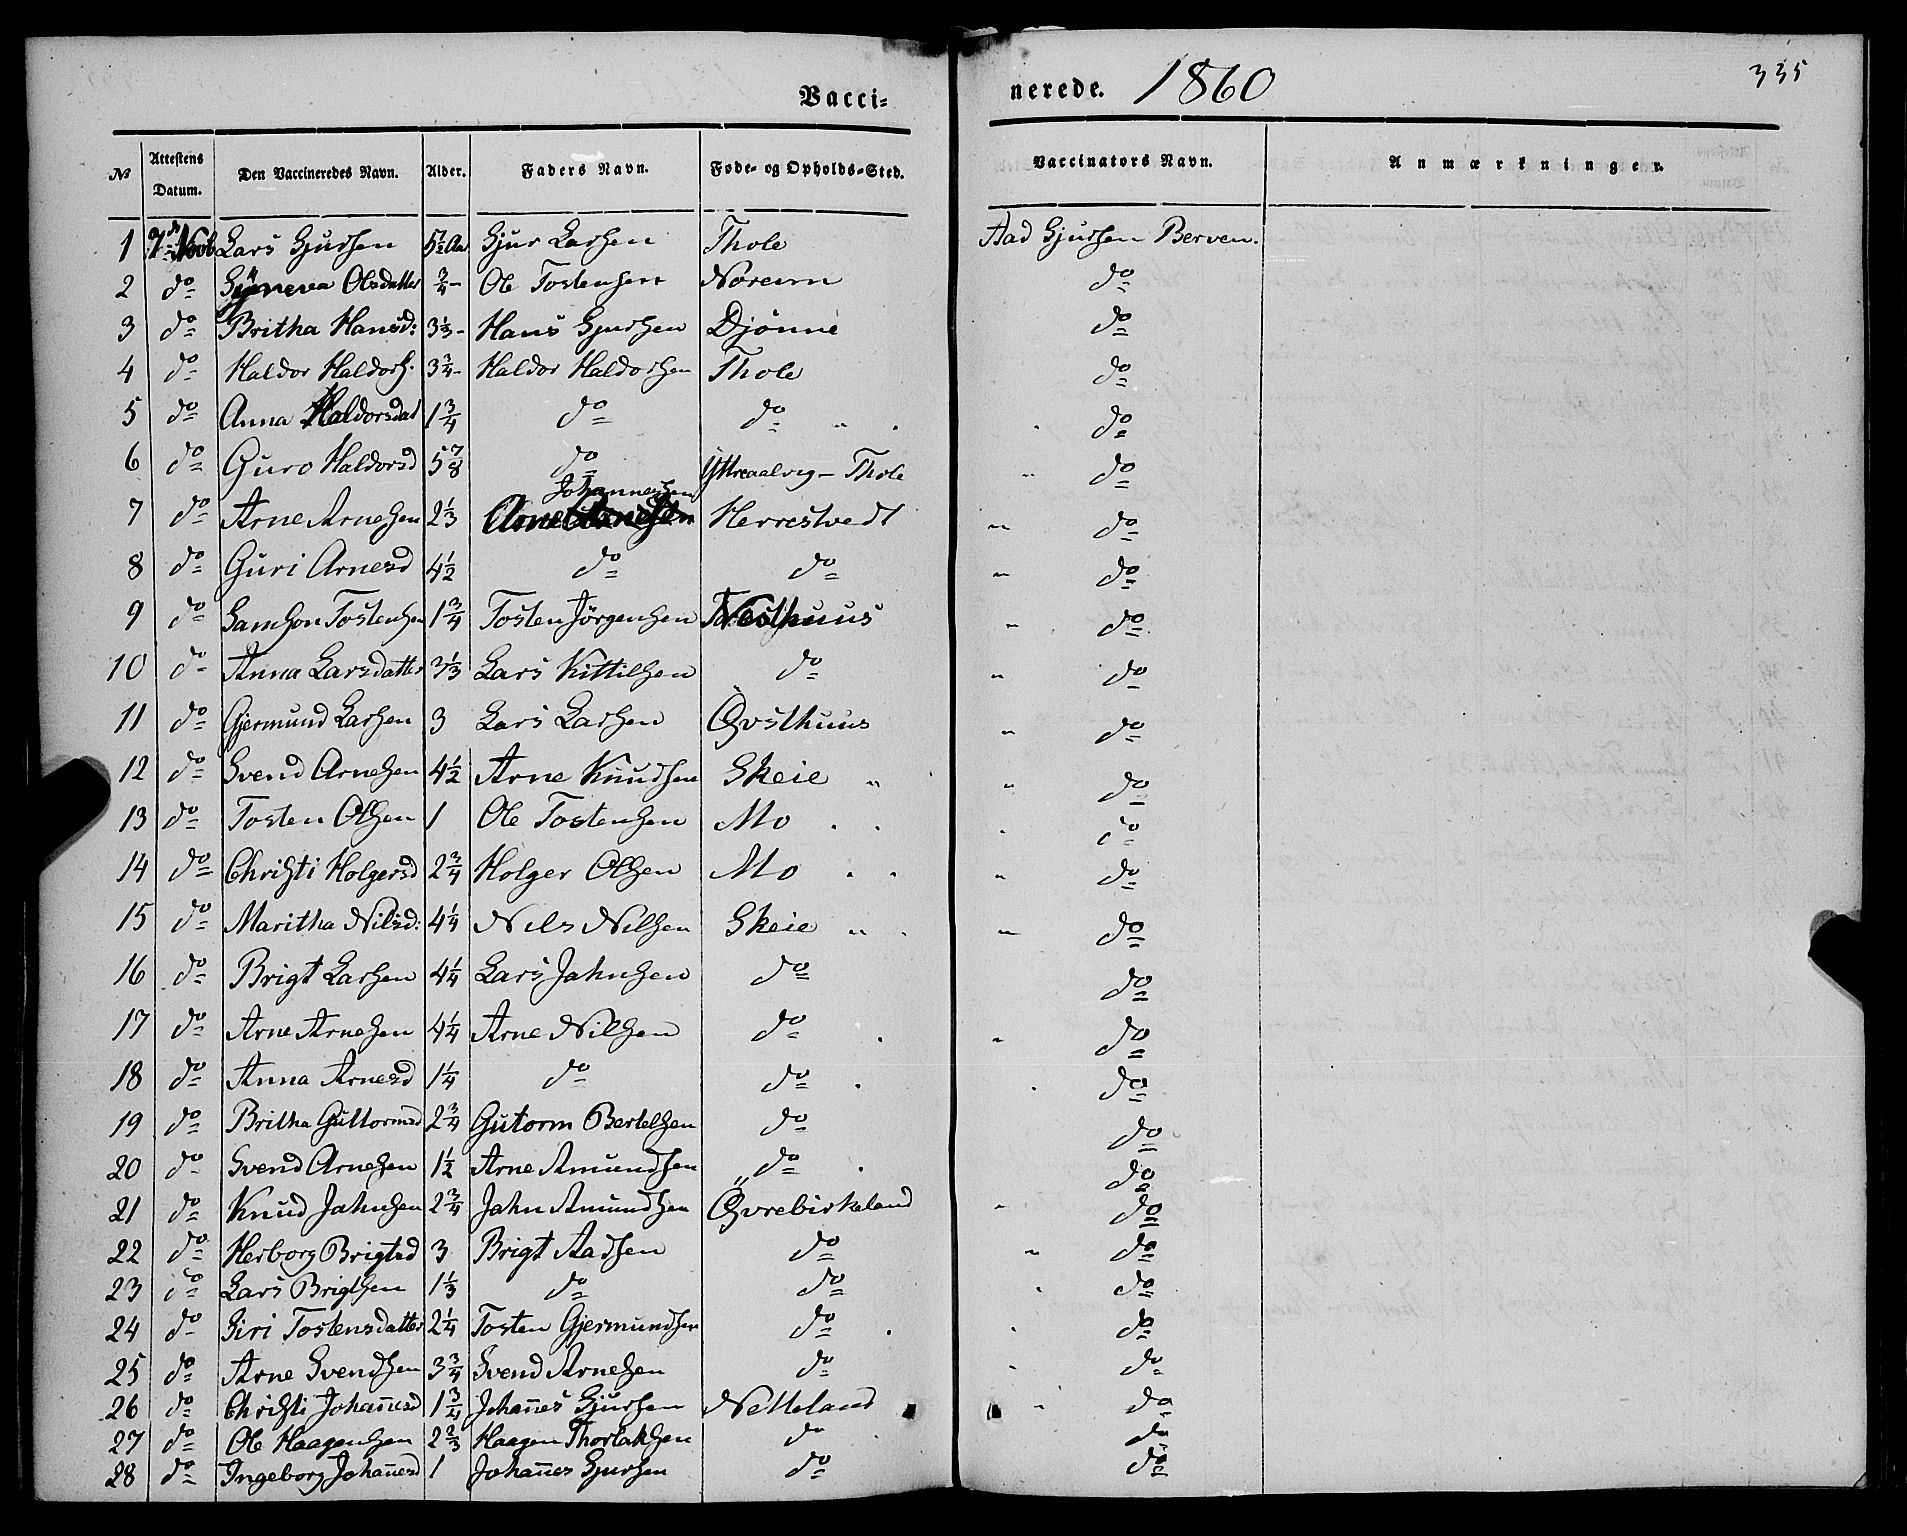 Vacci- nerede. 1860 335
No Attestens Datum. Den Vaccineredes Navn. Alder. Faders Navn. Føde- og Opholds-Sted. Vaccinators Navn. Anmærkninger.
1 7de Novb Lars Gjursen Gjur Larsen Thole Aad Gjursen Berven.
2 do Synneva Olsdatter 3/4 - Ole Tostensen Noreim do
3 do Britha Hansd: 3 1/3 - Hans Gjursen Djønne do
4 do Haldor Haldors. 3 3/4 - Haldor Haldorsen Thole do
5 do Anna Haldorsdat 1 3/4 do do " . . do
6 do Guro Haldorsd 5 7/8 do Yttreaalvig - Thole " do
7 do Arne Arnesen 2 1/3 Arne Johannesen Herrestvedt " do
8 do Guri Arnesd 4 1/2 do do " do
9 do Samson Tostensen 1 3/4 Tosten Jörgensen Nesthuus " do
10 do Anna Larsdatter 3 1/3 Lars Kittilsen do " do
11 do Gjermund Larsen 3 Lars Larsen Qvsthuus " do
12 do Svend Arnesen 4 1/2 Arne Knudsen Skeie " " do
13 do Tosten Olsen 1 Ole Tostensen Mo . . . do
14 do Christi Holgersd 2 3/4 Holger Olsen Mo . . " do
15 do Maritha Nilsd: 4 1/4 Nils Nilsen Skeie " . " do
16 do Brigt Larsen 4 1/4 Lars Jahnsen do do
17 do Arne Arnesen 4 1/4 Arne Nilsen do . " do
18 do Anna Arnesd 1 1/4 do do . . do
19 do Britha Guttormsd 2 3/4 Gutorm Bertelsen do do
20 do Svend Arnesen 1 1/2 Arne Amundsen do . do
21 do Knud Jahnsen 2 3/4 Jahn Amundsen Övrebirkeland " do
22 do Herborg Brigtsd 3 Brigt Aadsen do " do
23 do Lars Brigtsen 1 1/3 do do . do
24 do Siri Tostensdatter 2 1/4 Tosten Gjermundsen do . . do
25 do Arne Svendsen 3 3/4 Svend Arnesen do . do
26 do Christi Johan̄esd 1 3/4 Johan̄es Gjursen Netteland " do
27 do Ole Haagensen 2 2/3 Haagen Thorlaksen do . do
28 do Ingeborg Johan̄esd 1 Johan̄es Gjursen do do